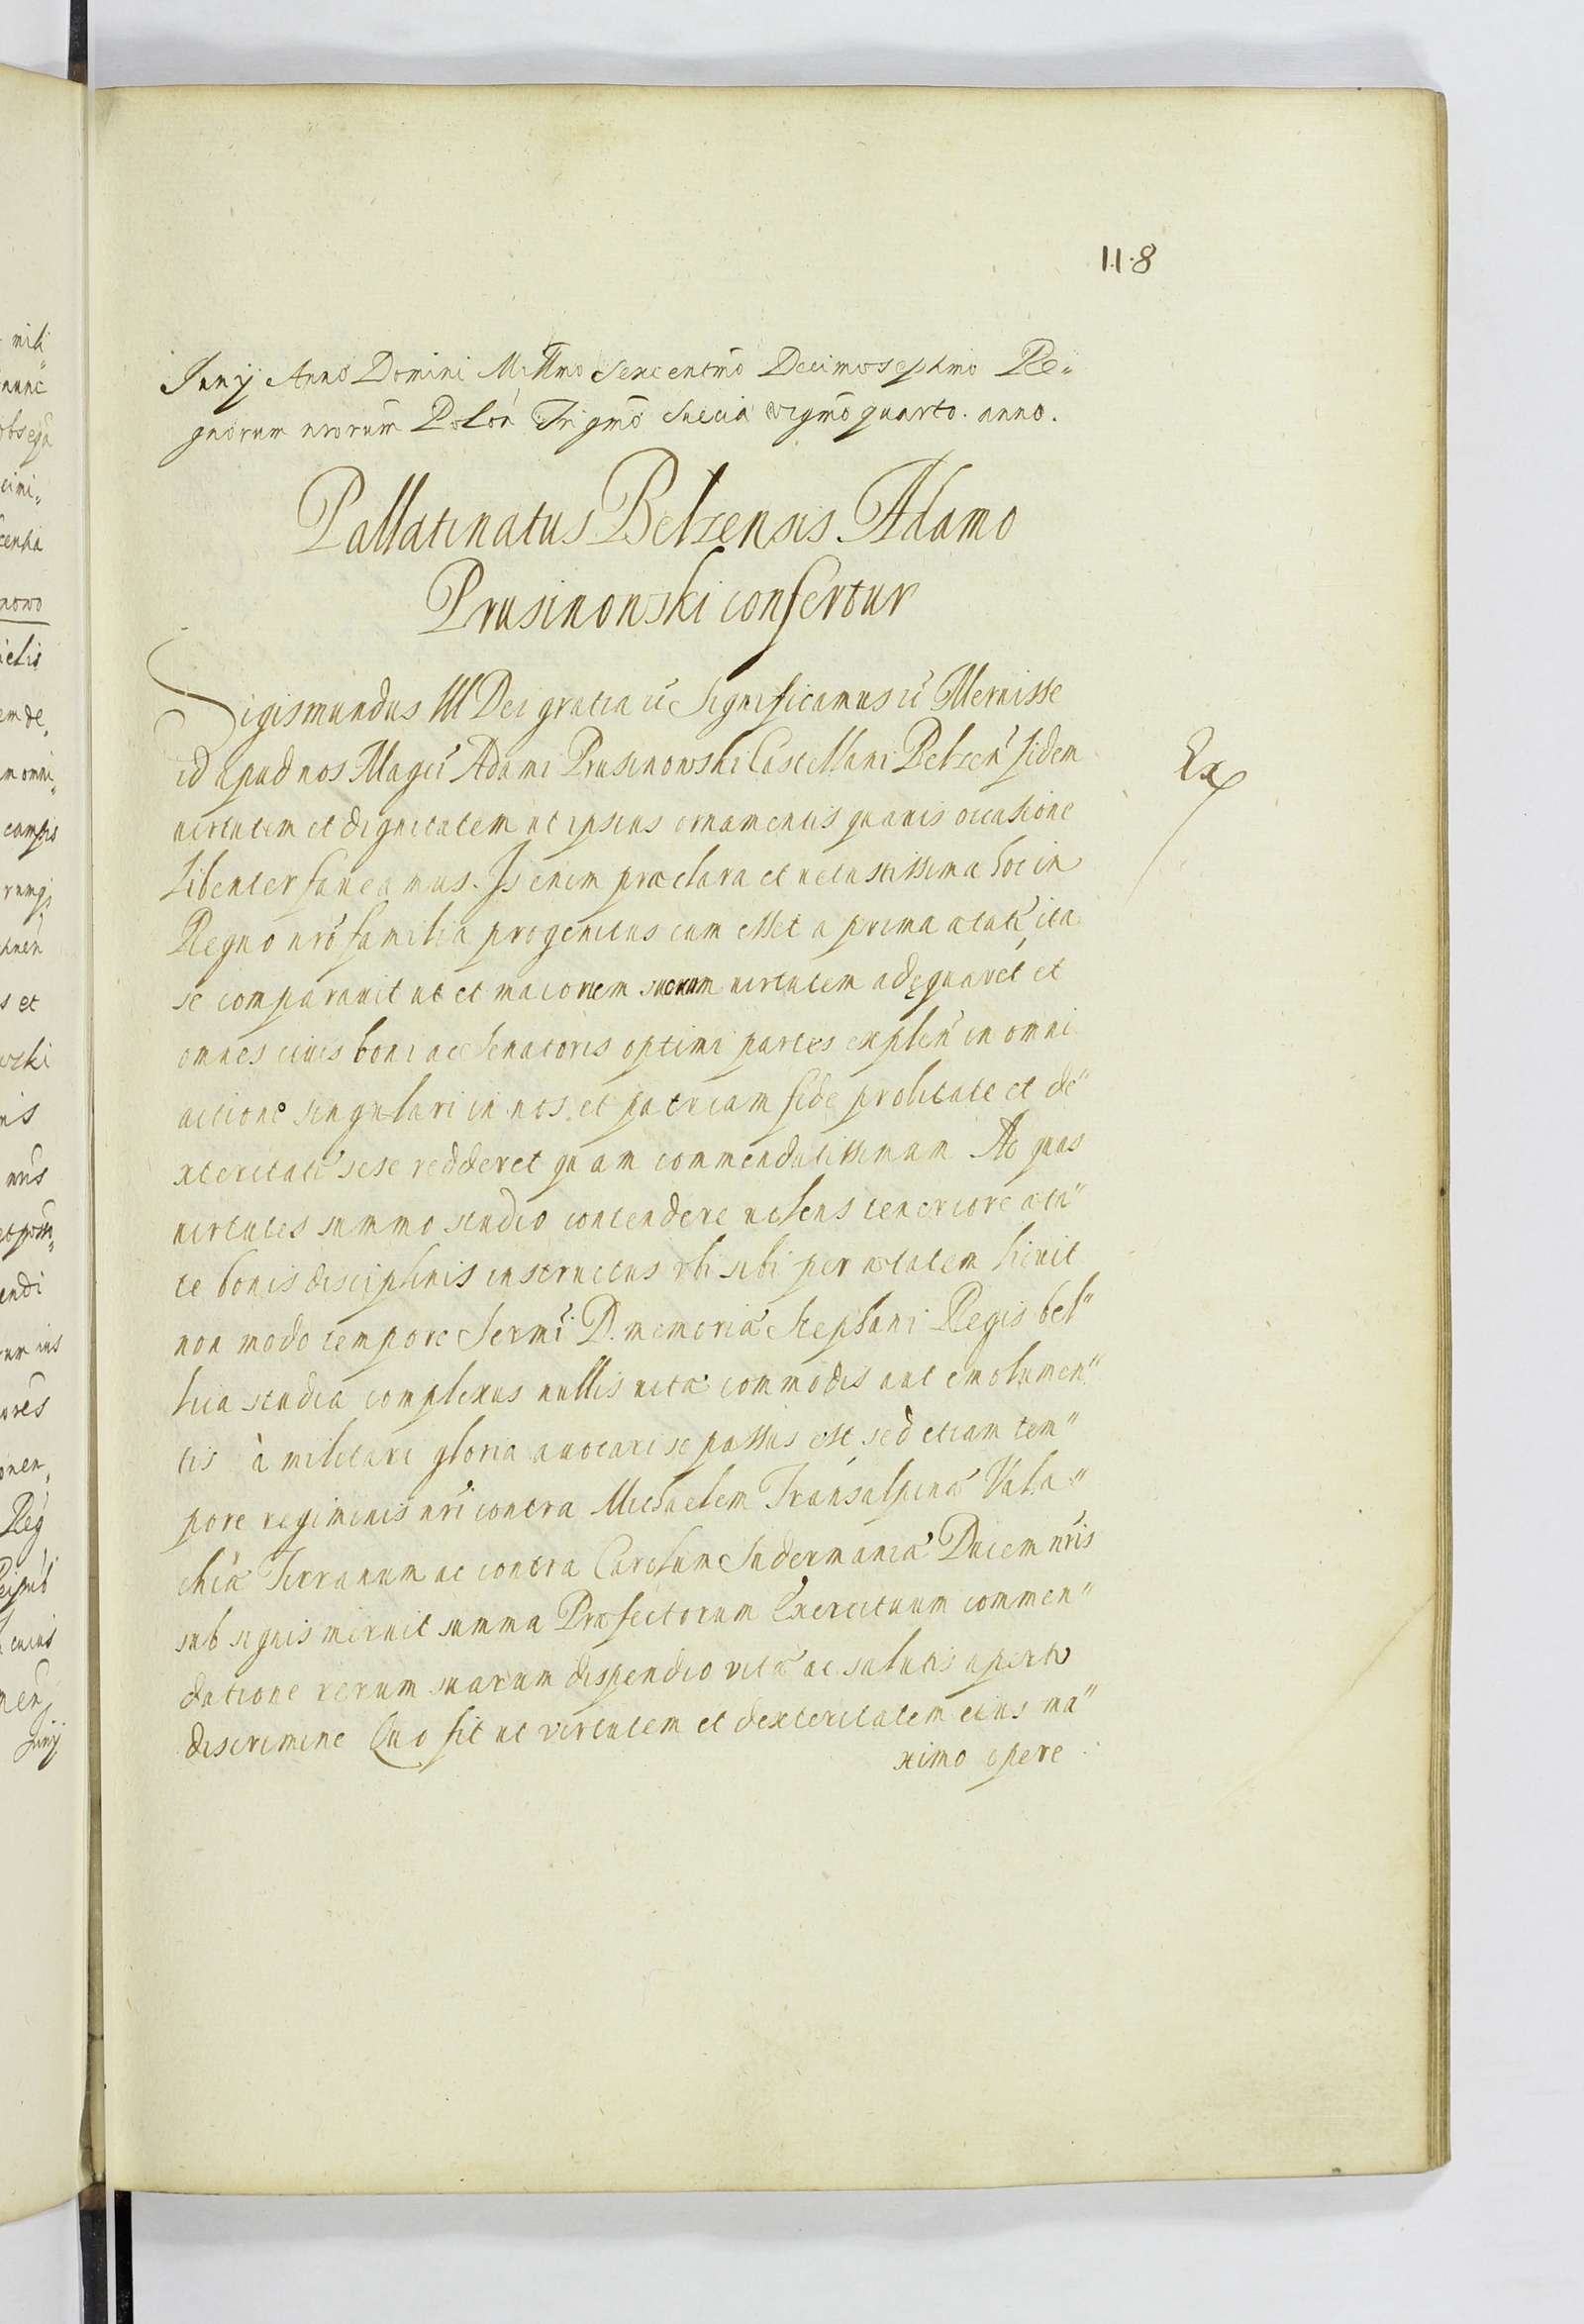 118
Junij Anno Domini Millmo Sexcentmo Decimoseptimo Re„
gnorum nrorum Polon Trigmo Sueciæ vigmo quarto. anno.
Pallatinatus Belzensis Adamo
Prusinonski confertur
Sigismundus III Dei gratia etc Significamus etc Meruisse
id apud nos Magci Adami Prusinowski Castellani Belzen fidem
uirtutem et dignitatem ut ipsius ornamentis quauis occasione
Libenter faueamus. Is enim præclara et uetustissima hoc in
Regno nro familia progenitus cum esset a prima ætate ita
se comparauit ut et maiorem suorum uirtutem adęquaret et
omnes ciuis boni ac Senatoris optimi partes expleu in omni
actione singulari in nos et patriam fide probitate et de"
xteritate sese redderet quam commendatissimum Ad quas
uirtutes summo studio contendere uolens teneriore æta"
te bonis disciplinis instructus vbi sibi per ætatem licuit
non modo tempore Sermi D. memoriæ Stephani Regis bel"
lica studia complexus nullis uitæ commodis aut emolumen"
tis à militari gloria auocari se passus est sed etiam tem"
pore regiminis nri contra Michaelem Transalpinæ Vala"
chiæ Tirranum ac contra Carolum Sudermaniæ Ducem nris
sub signis meruit summa Præfectorum Exercituum commen"
datione rerum suarum dispendio vitæ ac salutis aperto
discrimine Quo fit ut virtutem et dexteritatem eius ma"
ximo opere
Ex